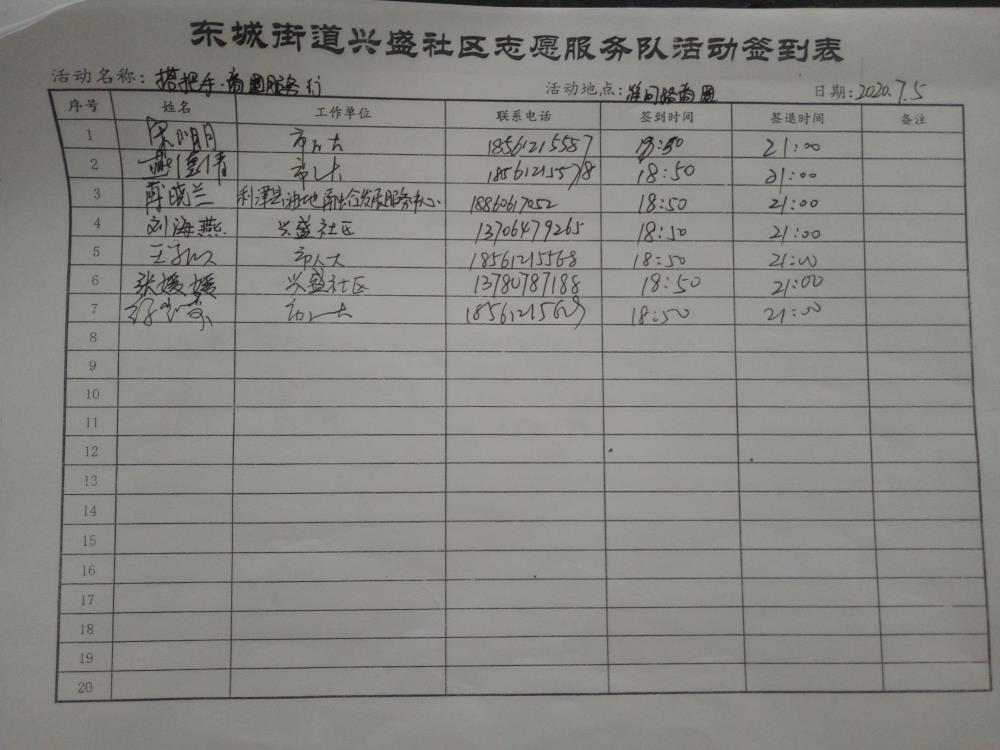 东城街道兴盛社区志愿服务队活动签到表
活动名称：搭把手·商圈服务行 活动地点：淮河路商圈 日期：2020.7.5
序号 姓名 工作单位 联系电话 签到时间 签退时间 备注
1 宋明月 市人大 18561215587 18:50 21:00
2 市人大 18561215578 18:50 21:00
3 薛晓兰 利津县 服务中心 18860617052 18:50 21:00
4 刘海燕 兴盛社区 13706479265 18:50 21:00
5 市人大 18561215568 18:50 21:00
6 张媛媛 兴盛社区 13780787188 18:50 21:00
7 市人大 18:50 21:00
8
9
10
11
12
13
14
15
16
17
18
19
20